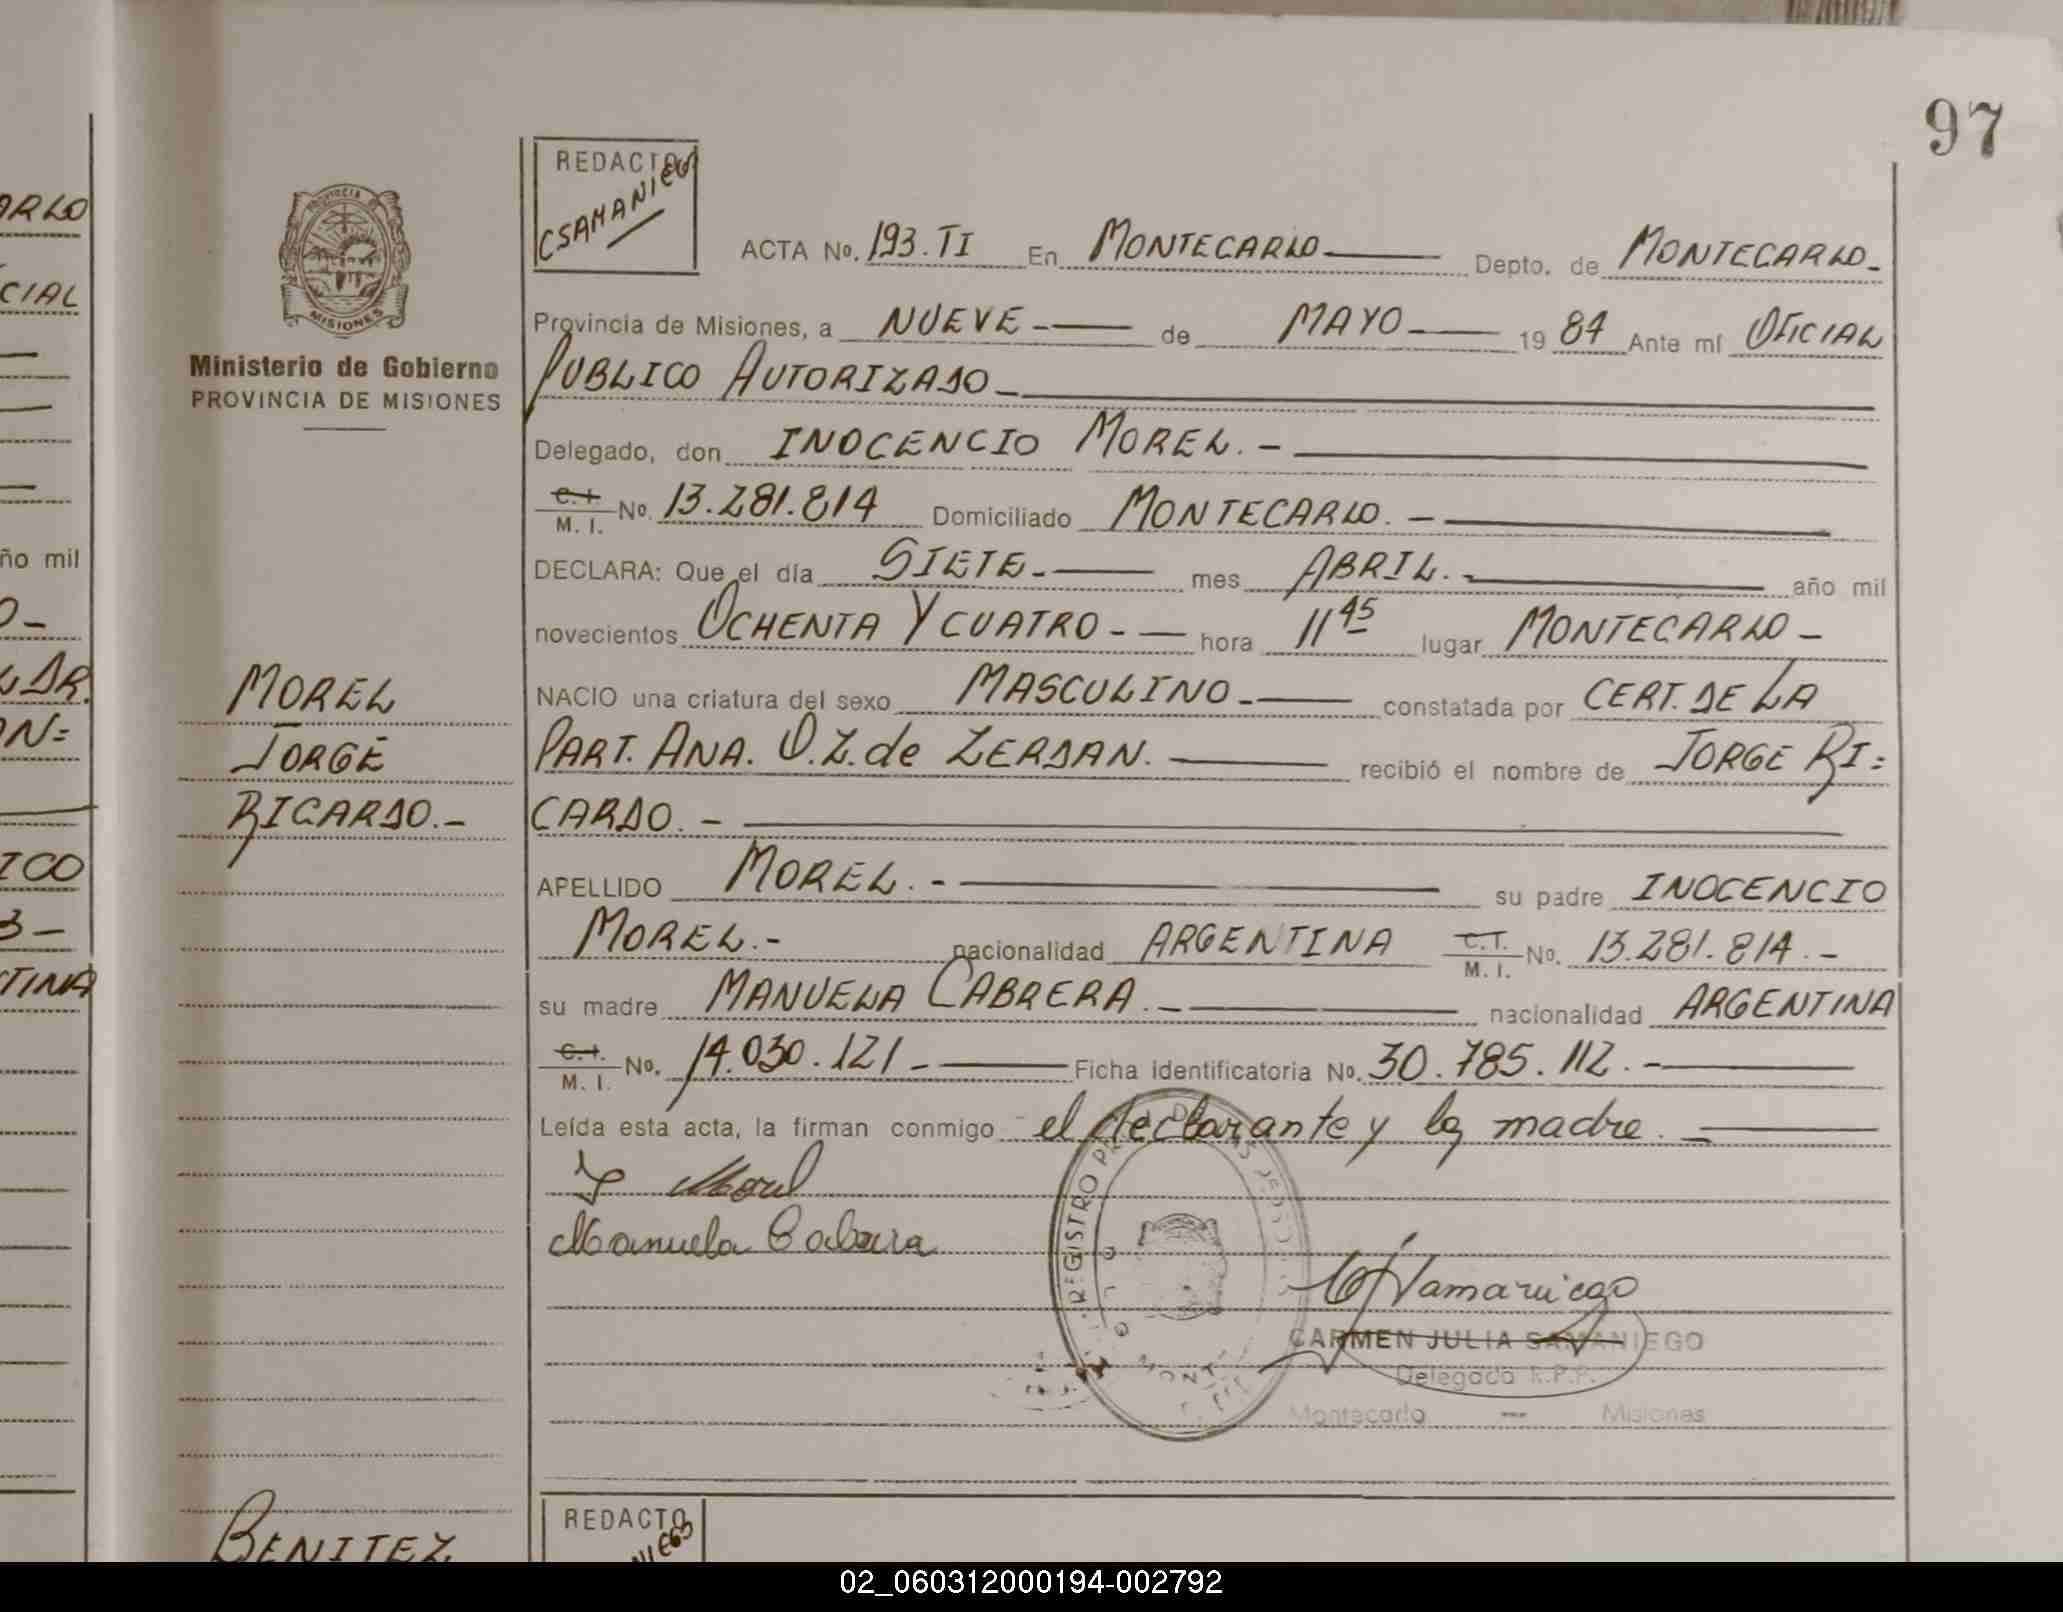 97
REDACTO
CSAMANIEGO
PROVINCIA DE
MISIONES
Ministerio de Gobierno
PROVINCIA DE MISIONES
ACTA No. 193.TI En MONTECARLO Depto. de MONTECARLO-
Provincia de Misiones, a NUEVE- de MAYO- 19 84 Ante mí OFICIAL
PUBLICO AUTORIZADO-
Delegado, don INOCENCIO MOREL.-
C.I. M. I. No. 13.281.814 Domiciliado MONTECARLO.-
DECLARA: Que el día SIETE- mes ABRIL.- año mil
novecientos OCHENTA Y CUATRO- hora 11 45 lugar MONTECARLO-
NACIO una criatura del sexo MASCULINO- constatada por CERT. DE LA
PART. ANA. O.Z. de ZERDAN. recibió el nombre de JORGE RI=
CARDO.-
APELLIDO MOREL.- su padre INOCENCIO
MOREL.- nacionalidad ARGENTINA C.I. M. I. No. 13.281.814.-
su madre MANUELA CABRERA.- nacionalidad ARGENTINA
C.I. M. I. No. 14.030.121- Ficha identificatoria No. 30.785.112.-
Leída esta acta, la firman conmigo el declarante y la madre.-
MOREL
JORGE
RICARDO.-
I Morel
Manuela Cabrera
REGISTRO
CJSamaniego
CARMEN JULIA SAMANIEGO
Delegada R.P.P.
Montecarlo — Misiones
BENITEZ
REDACTO
ARLO
CIAL
ño mil
O-
L DR.
N=
ICO
3-
TINA
02_060312000194-002792